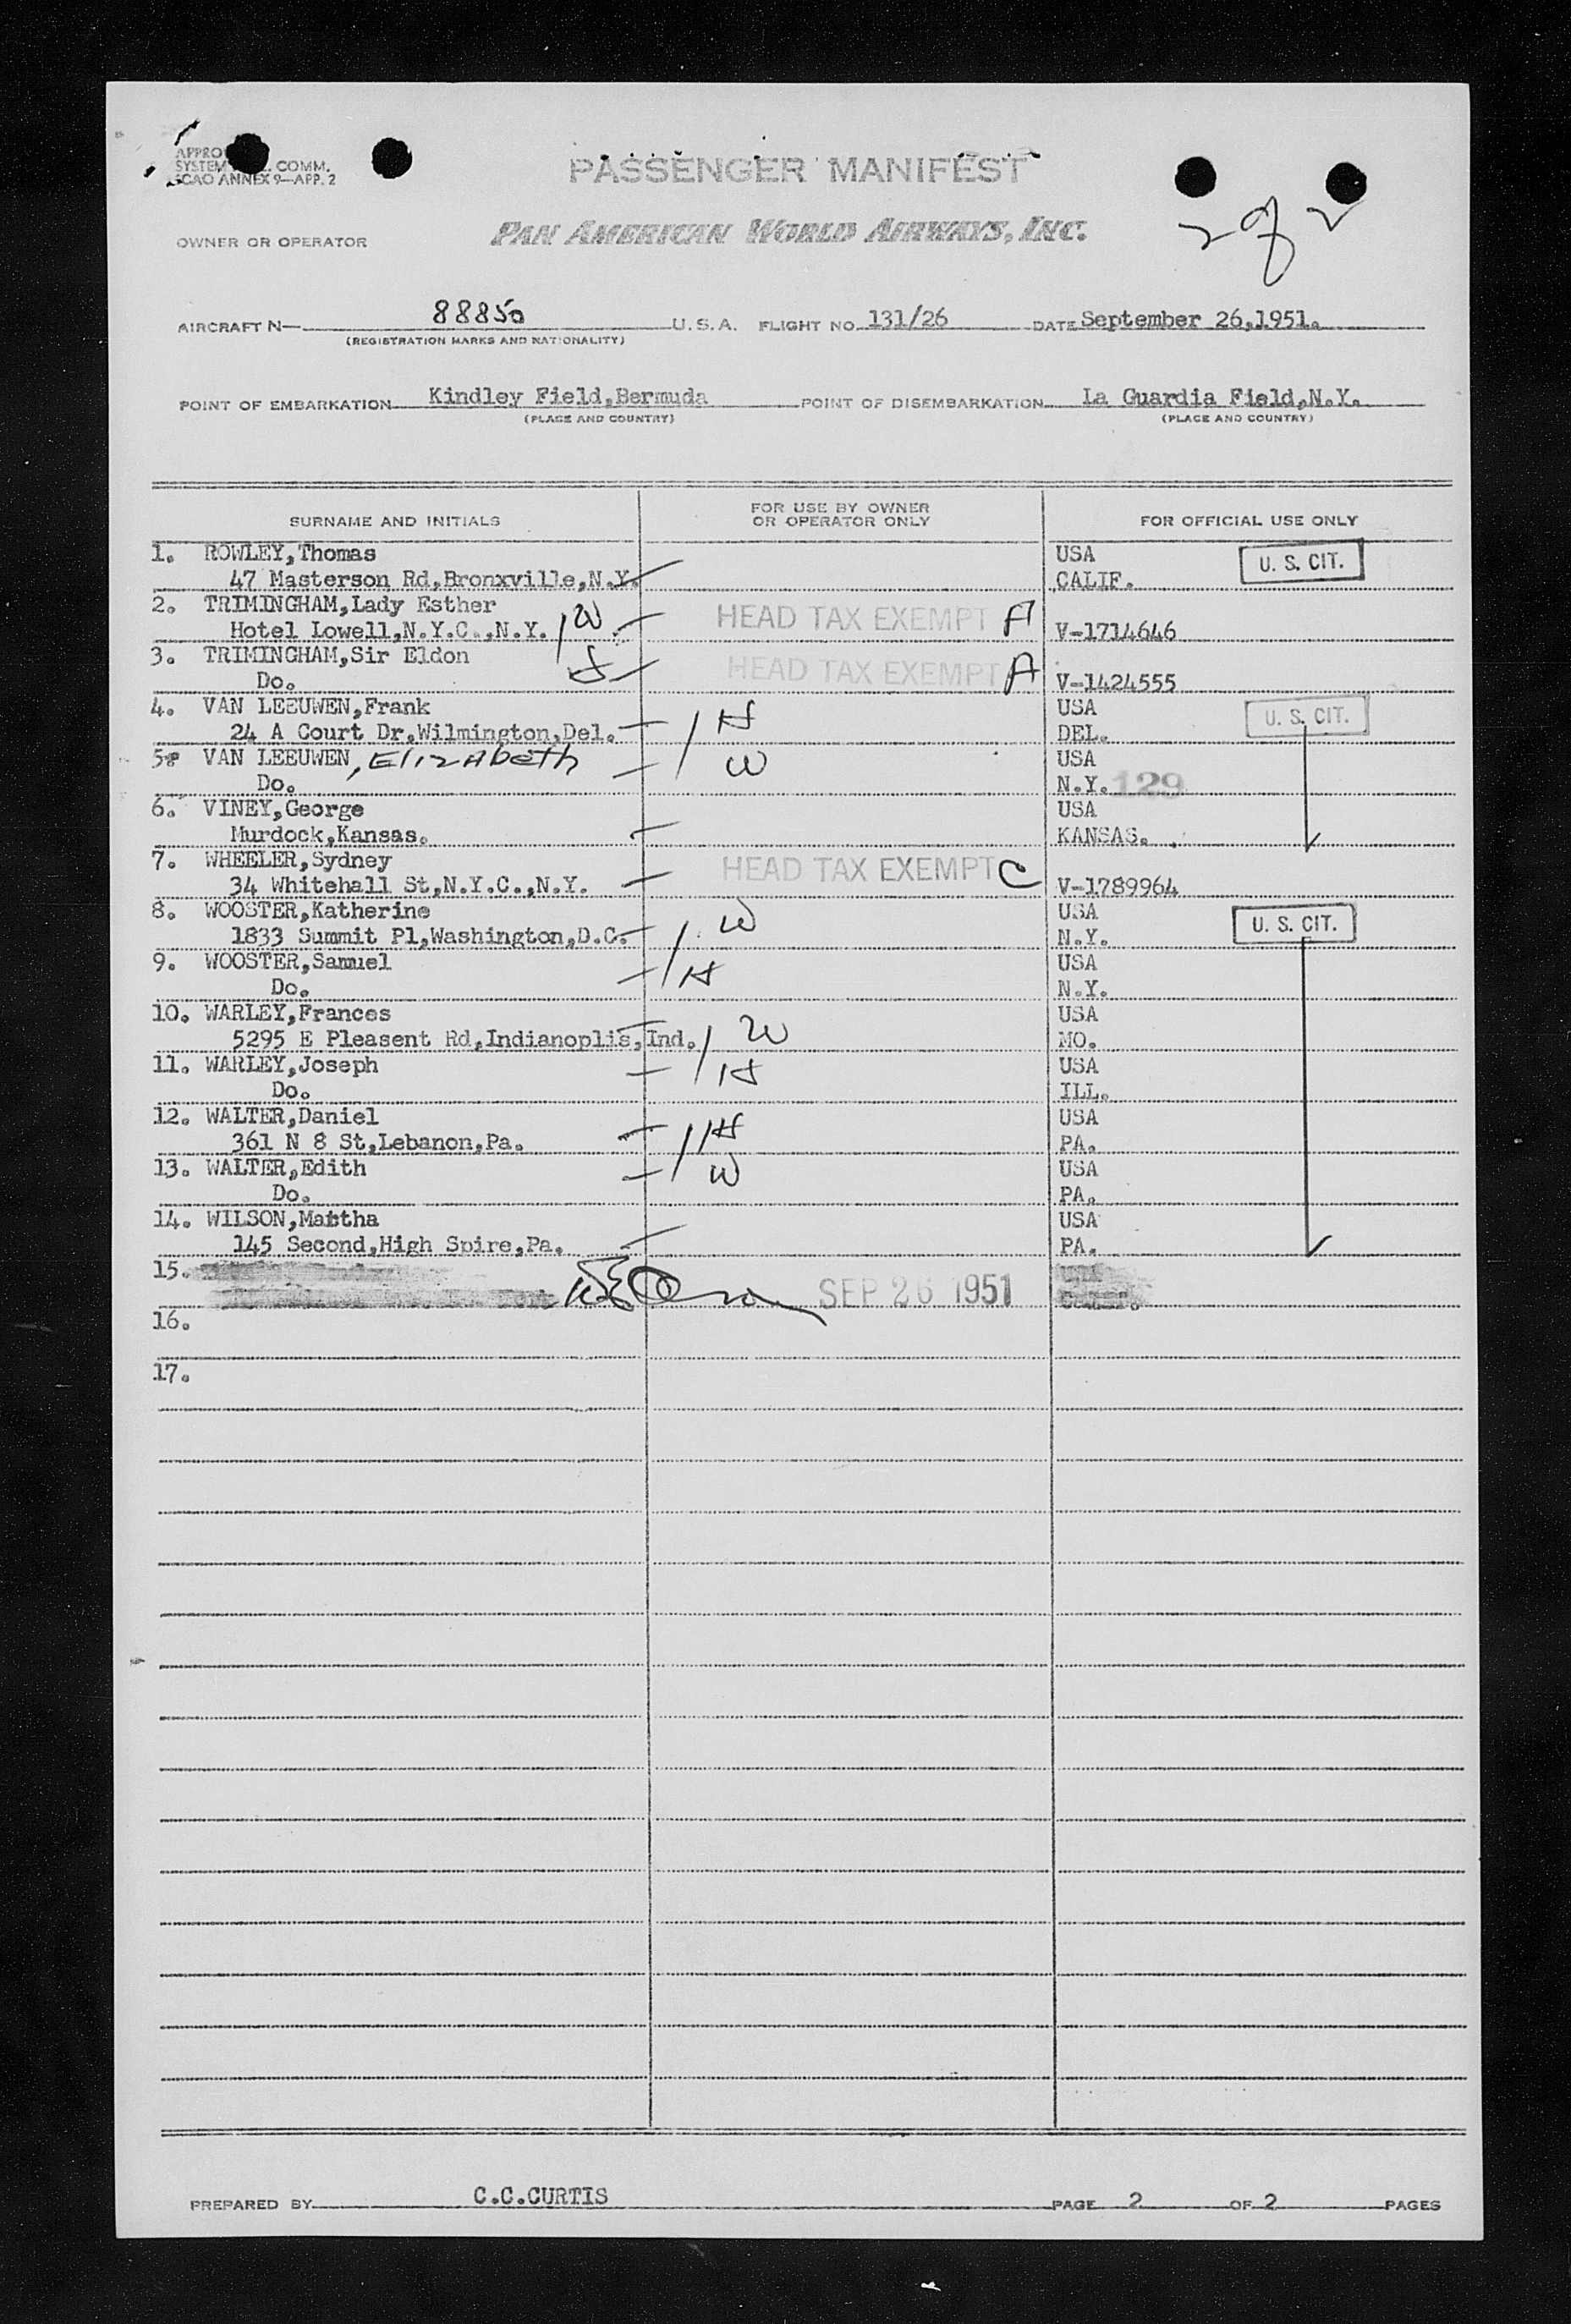 SYSTEM COMM.
ICAO ANNEX 9—APP. 2
PASSENGER MANIFEST
2 of 2
OWNER OR OPERATOR PAN AMERICAN WORLD AIRWAYS, INC.
AIRCRAFT N— 88850 U. S. A. FLIGHT NO. 131/26 DATE September 26,1951.
(REGISTRATION MARKS AND NATIONALITY)
POINT OF EMBARKATION Kindley Field,Bermuda POINT OF DISEMBARKATION La Guardia Field,N.Y.
(PLACE AND COUNTRY) (PLACE AND COUNTRY)
SURNAME AND INITIALS FOR USE BY OWNER OR OPERATOR ONLY FOR OFFICIAL USE ONLY
1. ROWLEY,Thomas USA U. S. CIT.
47 Masterson Rd,Bronxville,N.Y. CALIF.
2. TRIMINGHAM,Lady Esther W HEAD TAX EXEMPT A
Hotel Lowell,N.Y.C.,N.Y. V-1714646
3. TRIMINGHAM,Sir Eldon H HEAD TAX EXEMPT A
Do. V-1424555
4. VAN LEEUWEN,Frank H USA U. S. CIT.
24 A Court Dr,Wilmington,Del. DEL.
5. VAN LEEUWEN, Elizabeth W USA
Do. N.Y. 129
6. VINEY,George USA
Murdock,Kansas. KANSAS.
7. WHEELER,Sydney HEAD TAX EXEMPT C
34 Whitehall St,N.Y.C.,N.Y. V-1789964
8. WOOSTER,Katherine W USA U. S. CIT.
1833 Summit Pl,Washington,D.C. N.Y.
9. WOOSTER,Samuel H USA
Do. N.Y.
10. WARLEY,Frances W USA
5295 E Pleasent Rd,Indianoplis,Ind. MO.
11. WARLEY,Joseph H USA
Do. ILL.
12. WALTER,Daniel H USA
361 N 8 St,Lebanon,Pa. PA.
13. WALTER,Edith W USA
Do. PA.
14. WILSON,Martha USA
145 Second,High Spire,Pa. PA.
15. SEP 26 1951
16.
17.
PREPARED BY C.C.CURTIS PAGE 2 OF 2 PAGES